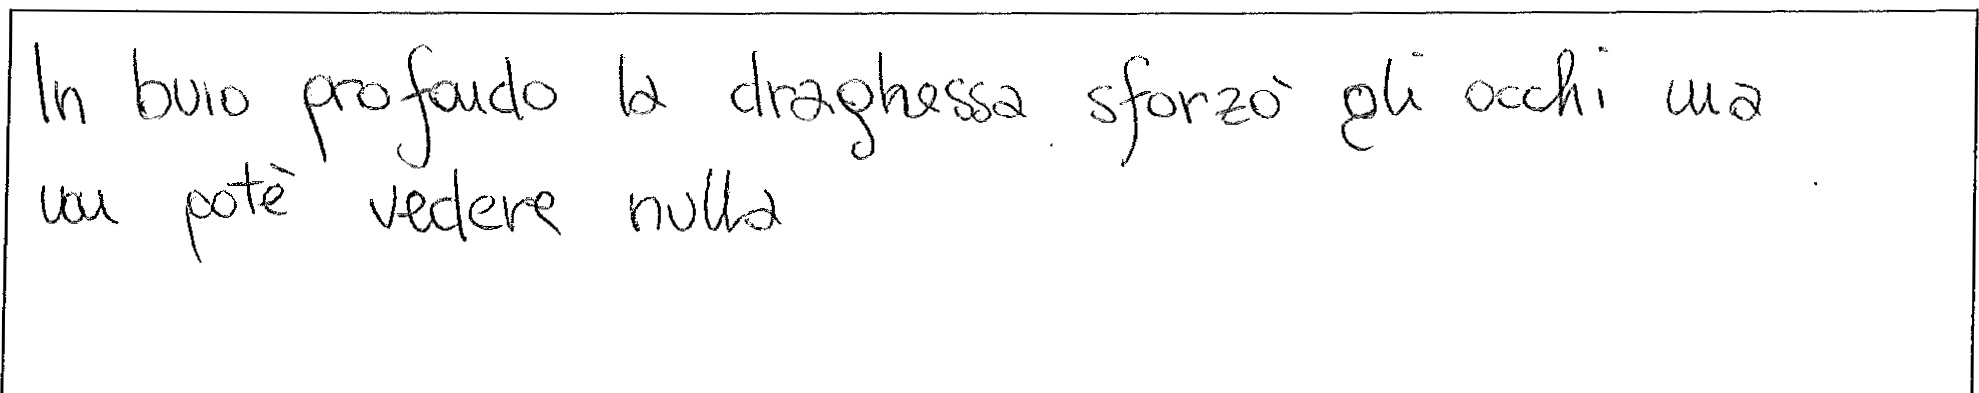 In buio profondo la draghessa sforzò gli occhi ma
non potè vedere nulla